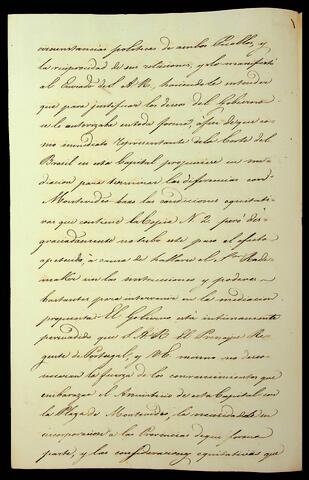 circunstancias politicas de ambos Pueblos, y
la reciprocidad de sus relaciones, y lo manifestó
al Enviado de S. A. R., haciendole entender
que para justificar los deseos del Gobierno
se le autorizaba en toda forma, á fin de que co-
mo inmediato Representante de la Corte del
Brasil en esta Capital propusiese su me-
diacion para terminar las diferencias con
Montevideo bajo las condiciones equitati-
vas que contiene la Copia N. 2. pero des-
graciadamente no tubo este paso el efecto
apetecido á causa de hallarse el Sr. Rade-
maker sin las instrucciones y poderes
bastantes para intervenir en la mediacion
propuesta. El Gobierno está intimamente
persuadido que S. A. R. El Principe Re-
gente de Portugal, y V. E. mismo no desco-
noceran la fuerza de los convencimientos que
embarazan el Armisticio de esta Capital con
la Plaza de Montevideo, la necesidad de su
incorporacion á las Provincias de que forma
parte, y las consideraciones equitativas que